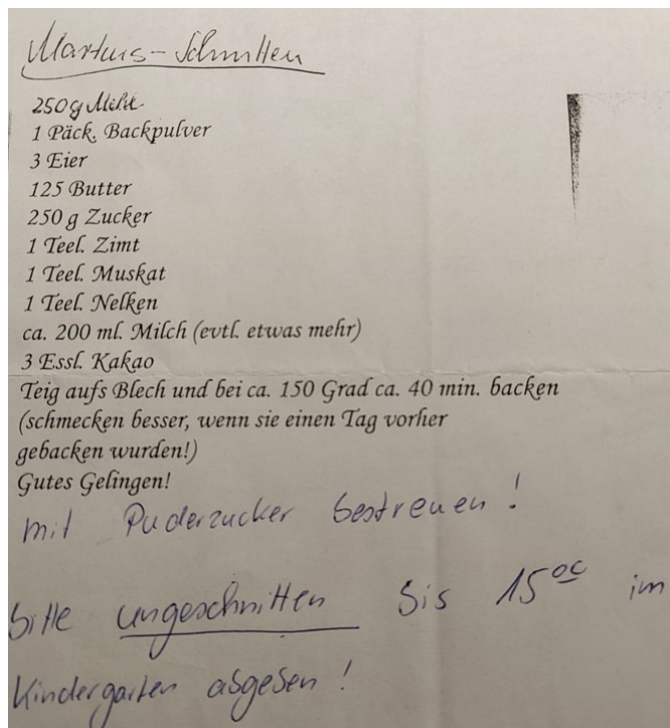 Martins-Schnitten
250g Mehl
1 Päck. Backpulver
3 Eier
125 Butter
250 g Zucker
1 Teel. Zimt
1 Teel. Muskat
1 Teel. Nelken
ca. 200 ml. Milch (evtl. etwas mehr)
3 Essl. Kakao
Teig aufs Blech und bei ca. 150 Grad ca. 40 min. backen
(schmecken besser, wenn sie einen Tag vorher
gebacken wurden!)
Gutes Gelingen!
mit Puderzucker bestreuen!
bitte ungeschnitten bis 15⁰⁰ im
Kindergarten abgeben!